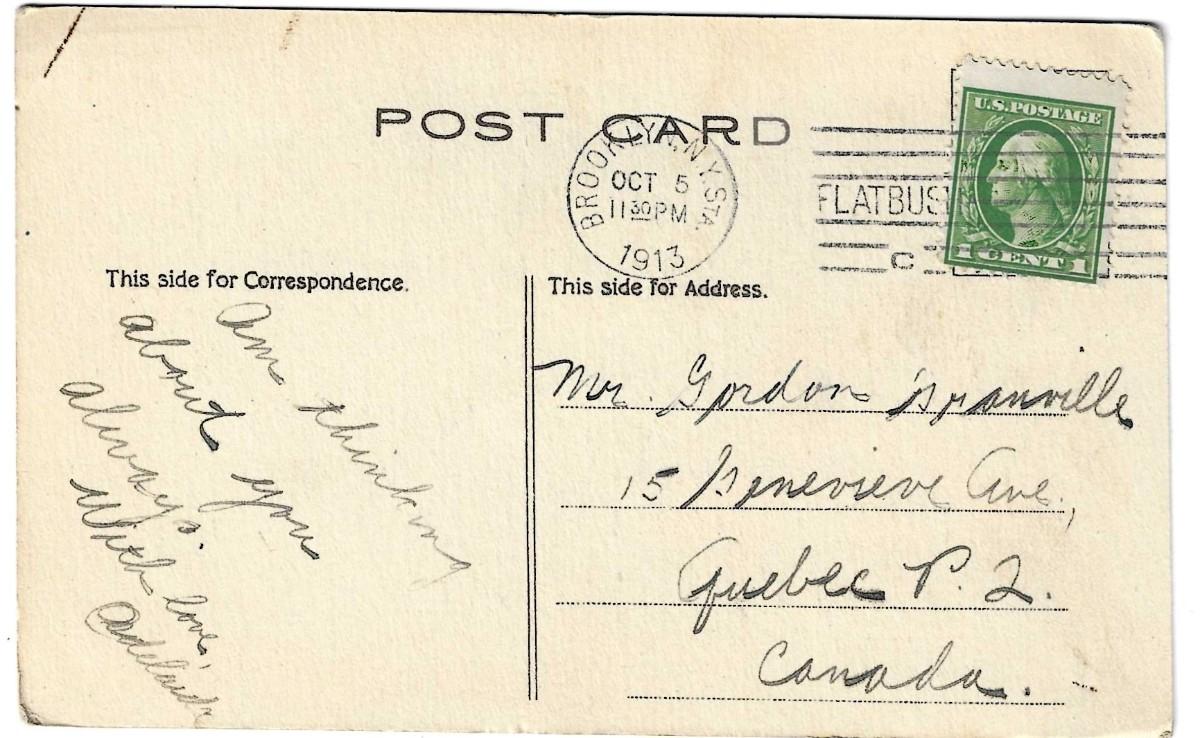 POST CARD
BROOKLYN, N.Y. STA.
OCT 5
11 30 PM
1913
FLATBUS
C
U.S. POSTAGE
1 CENT 1
This side for Correspondence.
Am thinking
about you
always.
With love,
Adelaide
This side for Address.
Mr. Gordon Granville
15 Genevieve Ave.,
Quebec P. Q.
Canada.